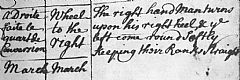 A Droite Wheel The right hand Man turns
faite le to the upon his right heel & ye
quart de right left come round Softly
Conversion keeping their Ranks Straight
March March